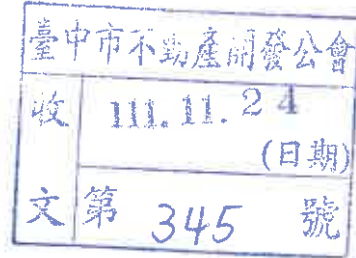 臺中市不動產開發公會
收 111.11.24
(日期)
文 第 345 號